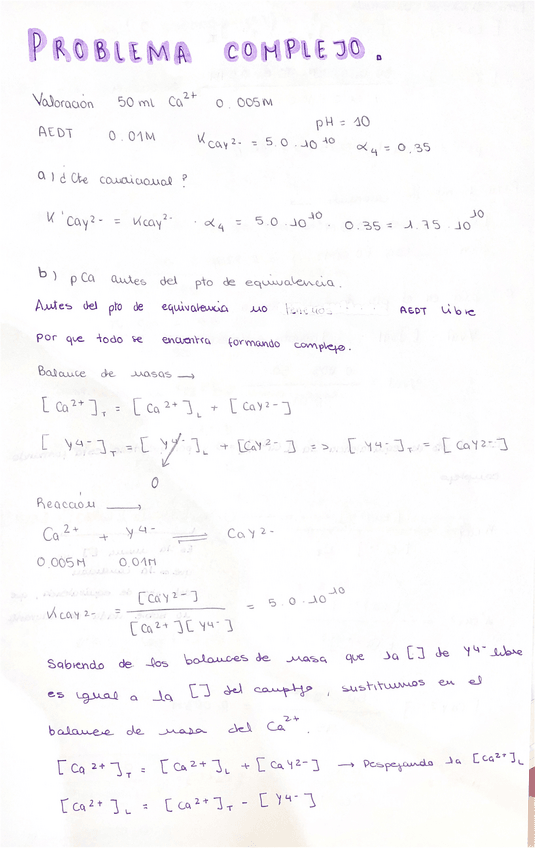 PROBLEMA COMPLEJO.
Valoración 50 ml Ca²⁺ 0.005M
pH = 10
AEDT 0.01M K CaY²⁻ = 5.0 · 10¹⁰ α₄ = 0.35
a) ¿ Cte condicional ?
K' CaY²⁻ = K CaY²⁻ · α₄ = 5.0 · 10¹⁰ · 0.35 = 1.75 · 10¹⁰
b) pCa antes del pto de equivalencia.
Antes del pto de equivalencia no AEDT libre
por que todo se encuentra formando complejo.
Balance de masas →
[Ca²⁺]T = [Ca²⁺]L + [CaY²⁻]
[Y⁴⁻]T = [Y⁴⁻]L + [CaY²⁻] => [Y⁴⁻]T = [CaY²⁻]
0
Reacción →
Ca²⁺ + Y⁴⁻ ⇌ CaY²⁻
0.005M 0.01M
K CaY²⁻ = [CaY²⁻] / [Ca²⁺][Y⁴⁻] = 5.0 · 10¹⁰
Sabiendo de los balances de masa que la [] de Y⁴⁻ libre
es igual a la [] del complejo, sustituimos en el
balance de masa del Ca²⁺.
[Ca²⁺]T = [Ca²⁺]L + [CaY²⁻] → Despejando la [Ca²⁺]L
[Ca²⁺]L = [Ca²⁺]T - [Y⁴⁻]